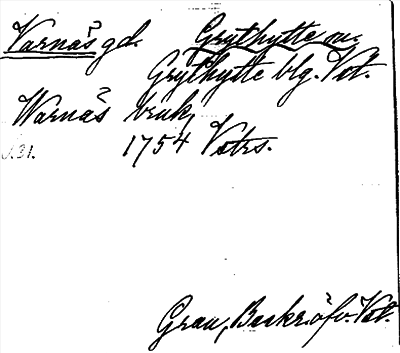 Varnäs gd. Grythytte sn.
Grythytte blg. Vstl.
Warnäs bruk,
J.31. 1754 Vstrs.
Grau, Beskr. öfv. Vstl.